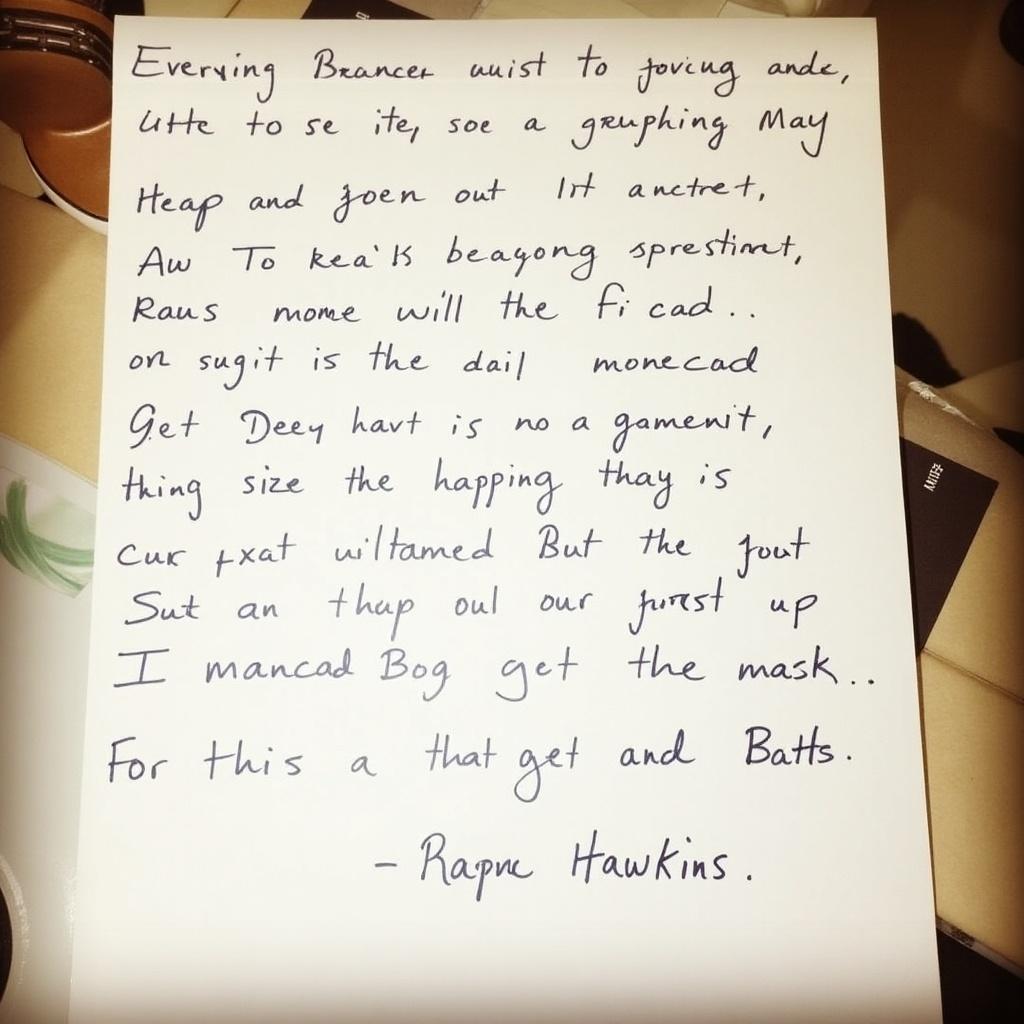 Everying Brancer uuist to jovcug ande,
Utte to se ite, soe a gruphing May
Heap and joen out Irt anctret,
Aw To kea'k beagong sprestinnt,
Raus mome will the fi cad..
on sugit is the dail monecad
Get Deey havt is no a gamenit,
thing size the happing thay is
cur fxat uiltamed But the jout
Sut an thap oul our jurst up
I mancad Bog get the mask..
For this a that get and Batts.
- Rapne Hawkins.